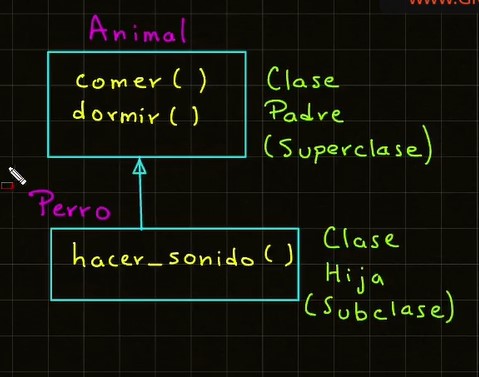 Animal
comer()
dormir()
Clase
Padre
(Superclase)
Perro
hacer_sonido()
Clase
Hija
(Subclase)